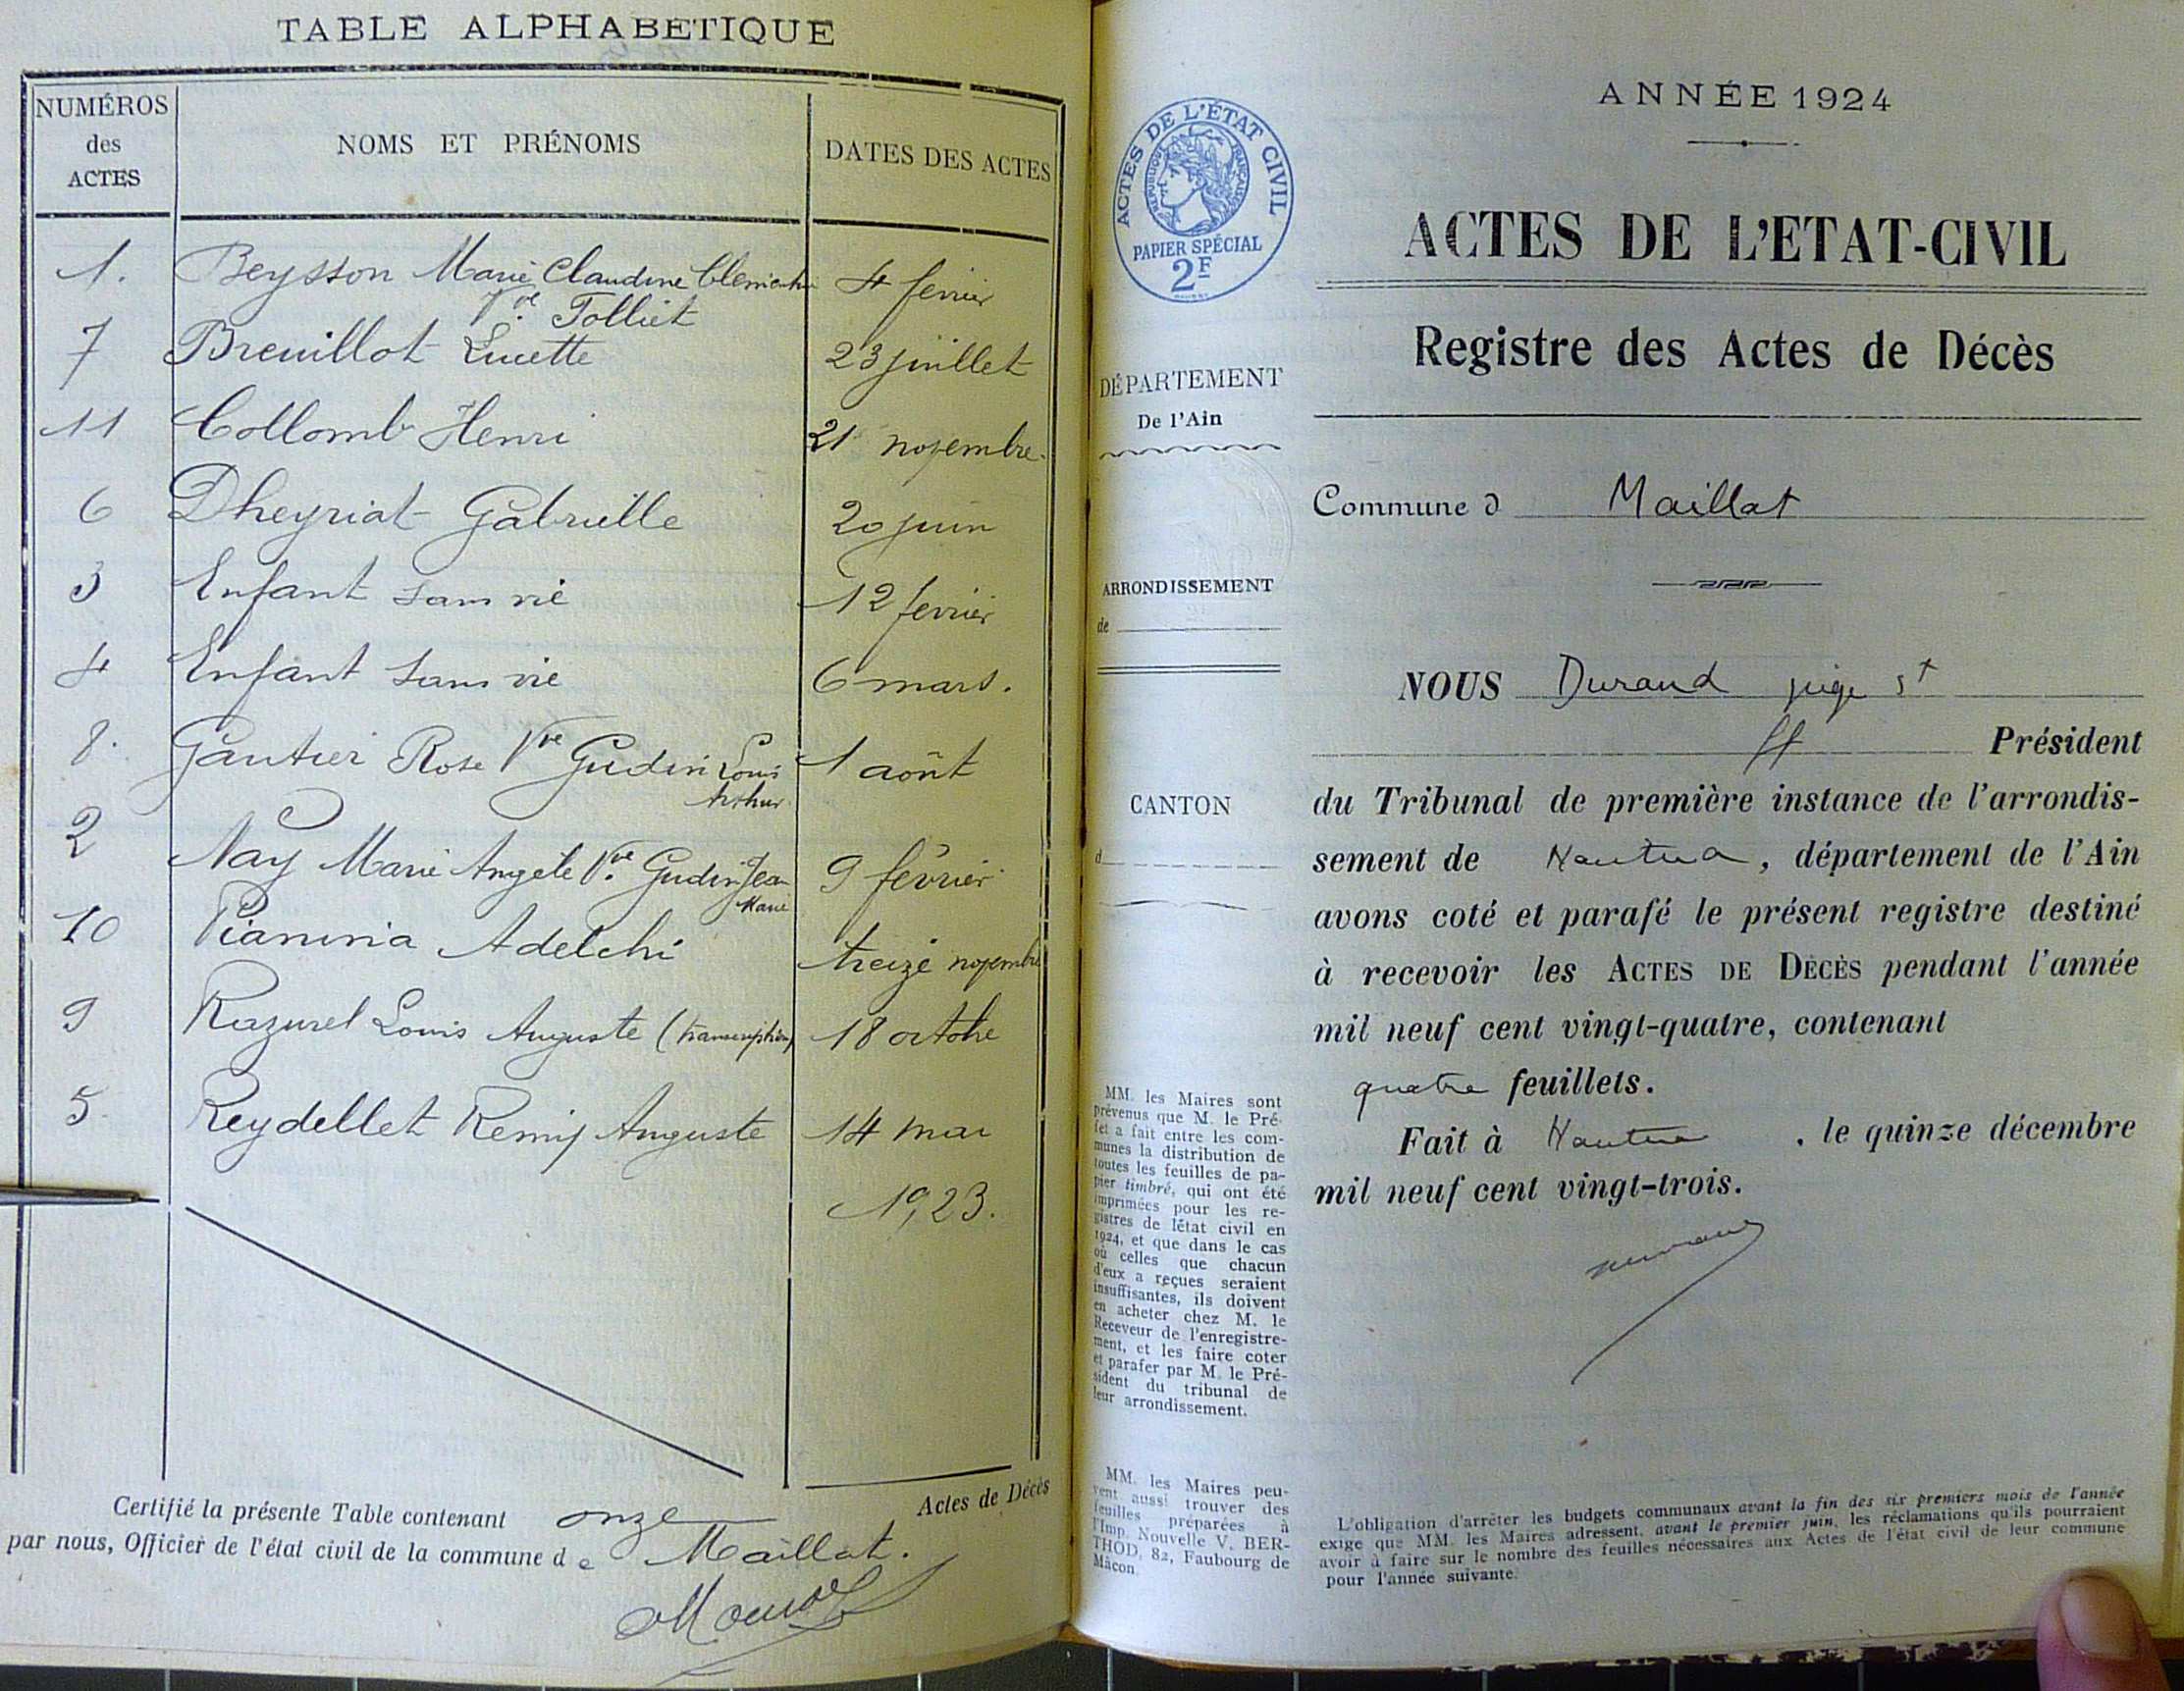 TABLE ALPHABETIQUE
NUMÉROS
des
ACTES
NOMS ET PRÉNOMS
DATES DES ACTES
1. Beysson Marie Claudine Clémentine 4 février
Vve Tolliet
7 Breuillot Lucette 23 juillet
11 Collomb Henri 21 novembre.
6 Dheyriat Gabrielle 20 juin
3 Enfant sans vie 12 février
4 Enfant sans vie 6 mars.
8. Gautier Rose Vve Gudin Louis 1 août
Arthur
2 Nay Marie Angèle Vve Gudin Jean 9 février
Marie
10 Pianina Adelchi treize novembre
9 Razurel Louis Auguste (transcription) 18 octobre
5. Reydellet Remy Auguste 14 mai
1923.
Certifié la présente Table contenant onze Actes de Décès
par nous, Officier de l'état civil de la commune d e Maillat.
ANNÉE 1924
ACTES DE L'ÉTAT CIVIL
RÉPUBLIQUE FRANÇAISE
PAPIER SPÉCIAL
2F
ACTES DE L'ETAT-CIVIL
Registre des Actes de Décès
DÉPARTEMENT
De l'Ain
Commune d Maillat
ARRONDISSEMENT
de
NOUS Durand juge st
ff Président
CANTON
d
du Tribunal de première instance de l'arrondis-
sement de Nantua, département de l'Ain
avons coté et parafé le présent registre destiné
à recevoir les ACTES DE DÉCÈS pendant l'année
mil neuf cent vingt-quatre, contenant
quatre feuillets.
Fait à Nantua, le quinze décembre
mil neuf cent vingt-trois.
MM. les Maires sont
prévenus que M. le Pré-
fet a fait entre les com-
munes la distribution de
toutes les feuilles de pa-
pier timbré, qui ont été
imprimées pour les re-
gistres de l'état civil en
1924, et que dans le cas
où celles que chacun
d'eux a reçues seraient
insuffisantes, ils doivent
en acheter chez M. le
Receveur de l'enregistre-
ment, et les faire coter
et parafer par M. le Pré-
sident du tribunal de
leur arrondissement.
MM. les Maires peu-
vent aussi trouver des
feuilles préparées à
l'Imp. Nouvelle V. BER-
THOD, 82, Faubourg de
Mâcon.
L'obligation d'arrêter les budgets communaux avant la fin des six premiers mois de l'année
exige que MM. les Maires adressent, avant le premier juin, les réclamations qu'ils pourraient
avoir à faire sur le nombre des feuilles nécessaires aux Actes de l'état civil de leur commune
pour l'année suivante.